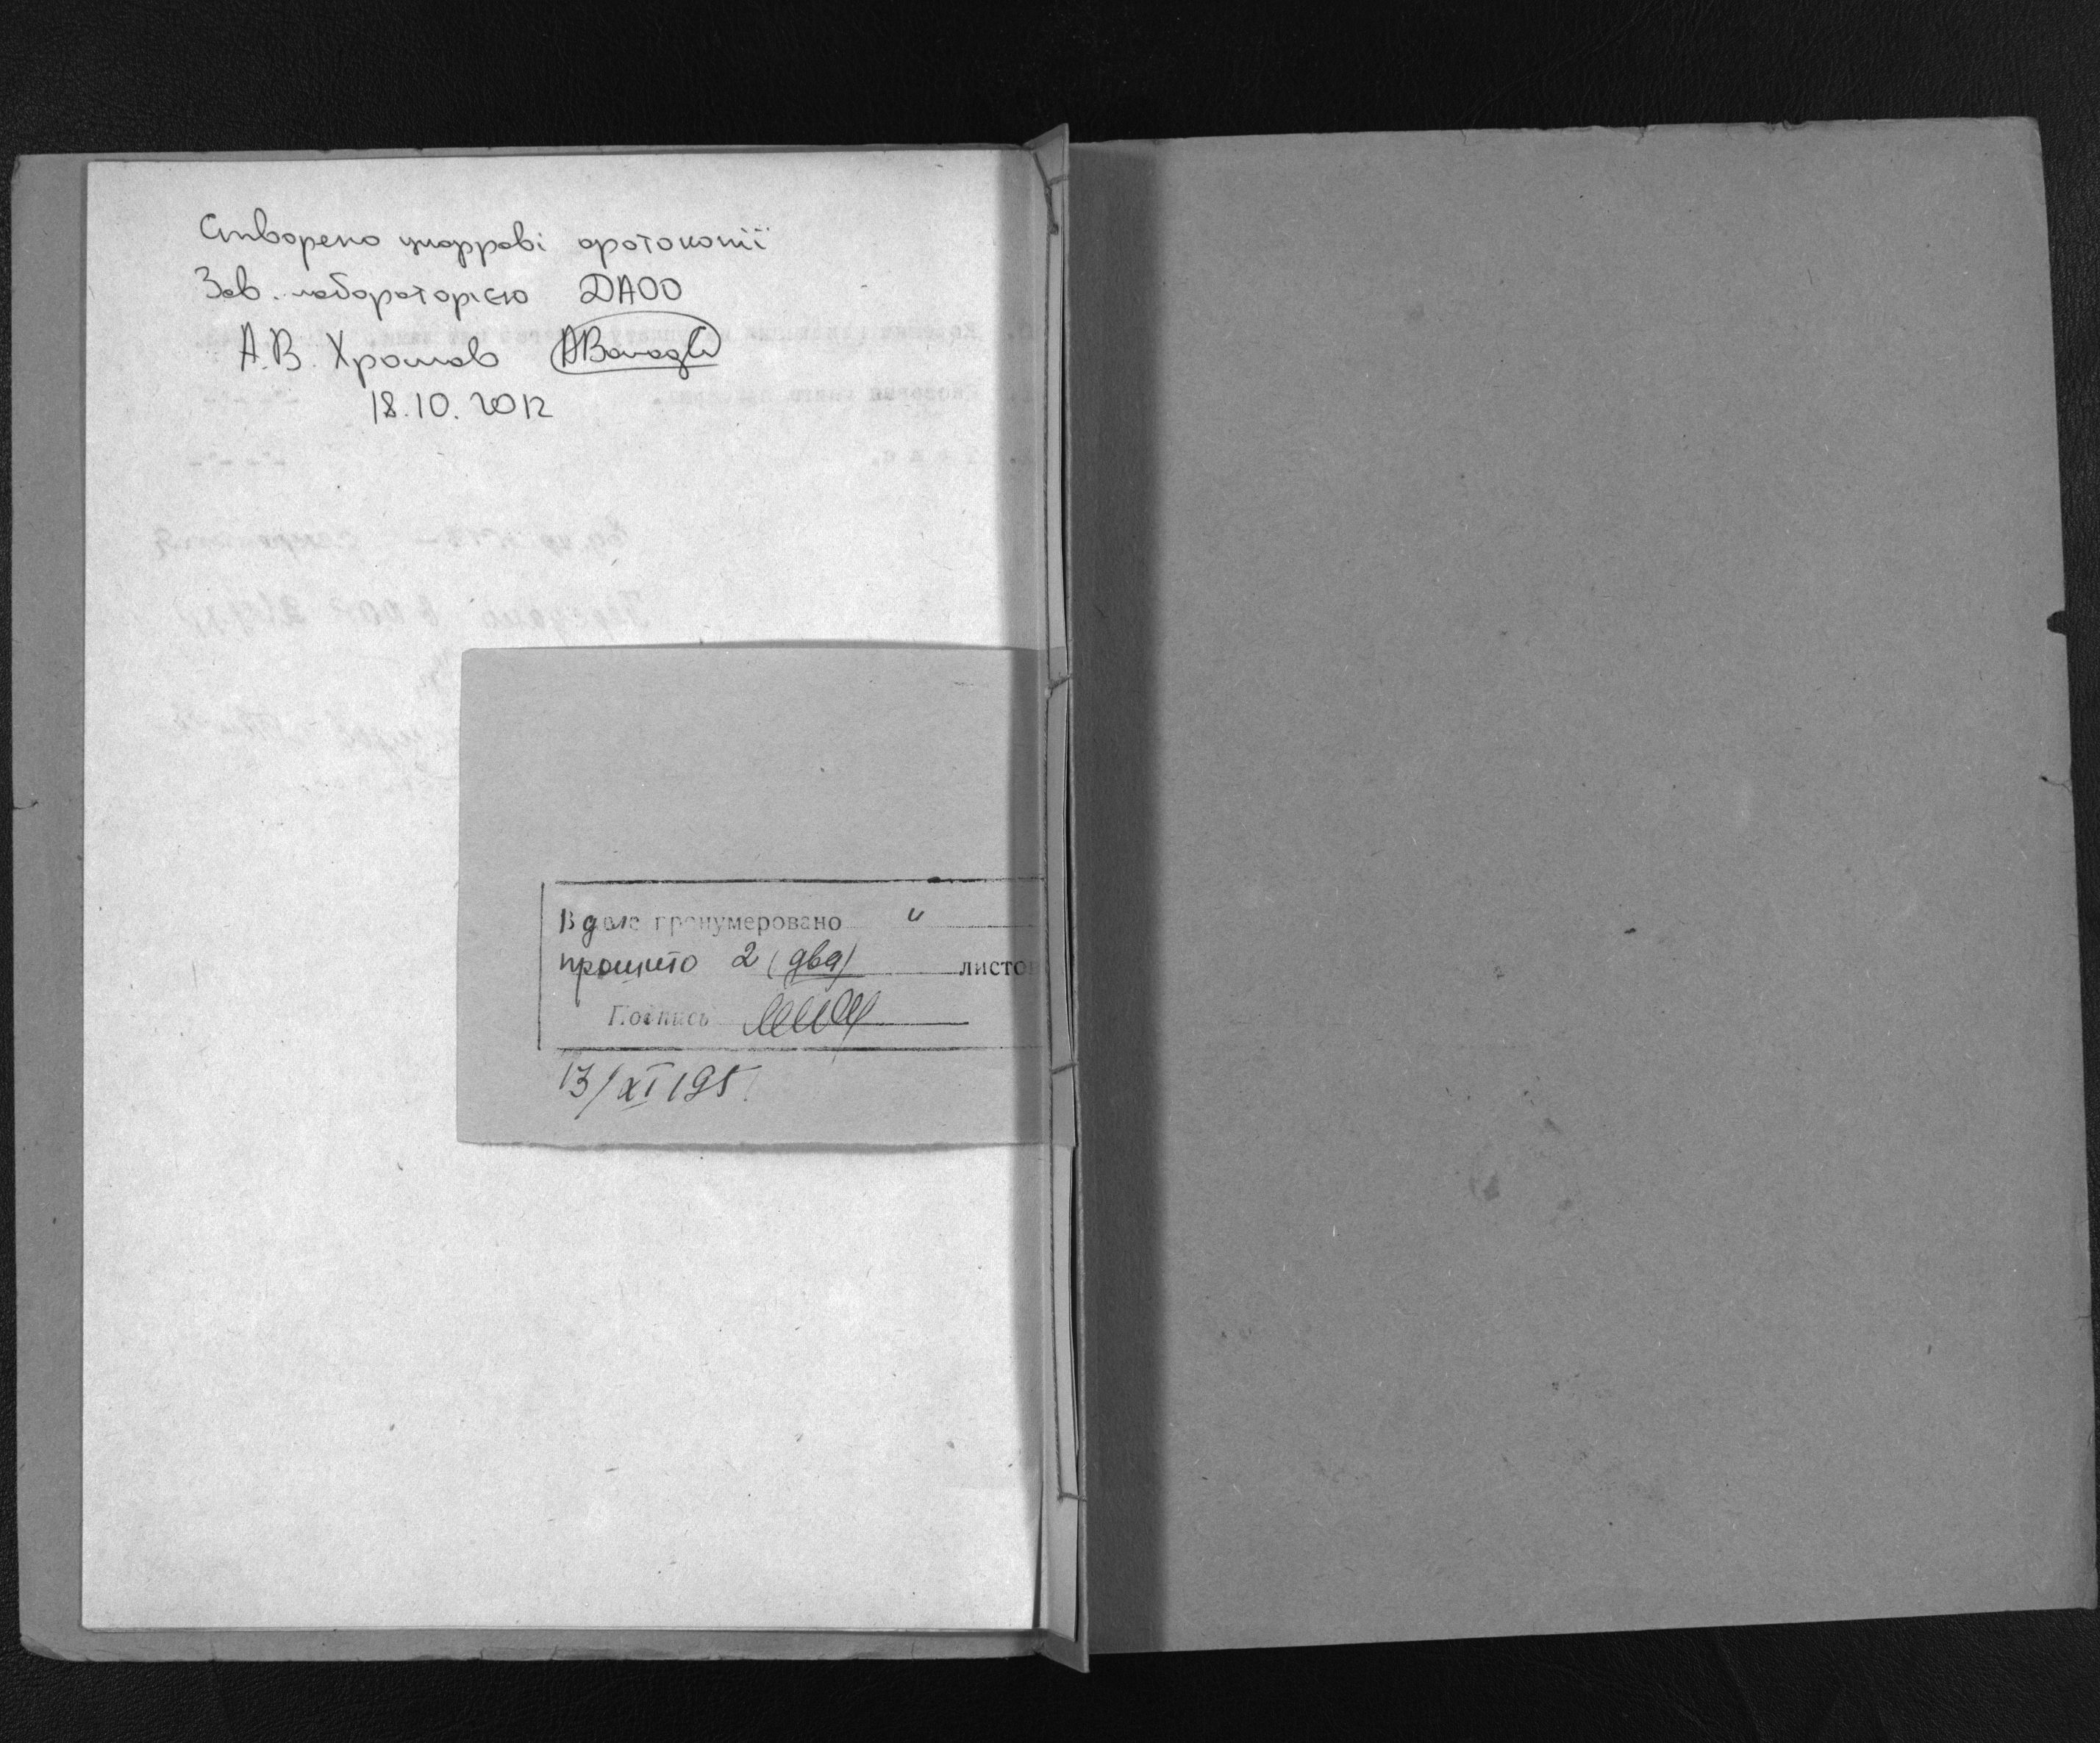 Створено цифрові фотокопії
Зав. лабораторією ДАОО
А.В. Хромов
18.10.2012
В деле пронумеровано "
прошито 2 (два) листов
Подпись
13/XI 195